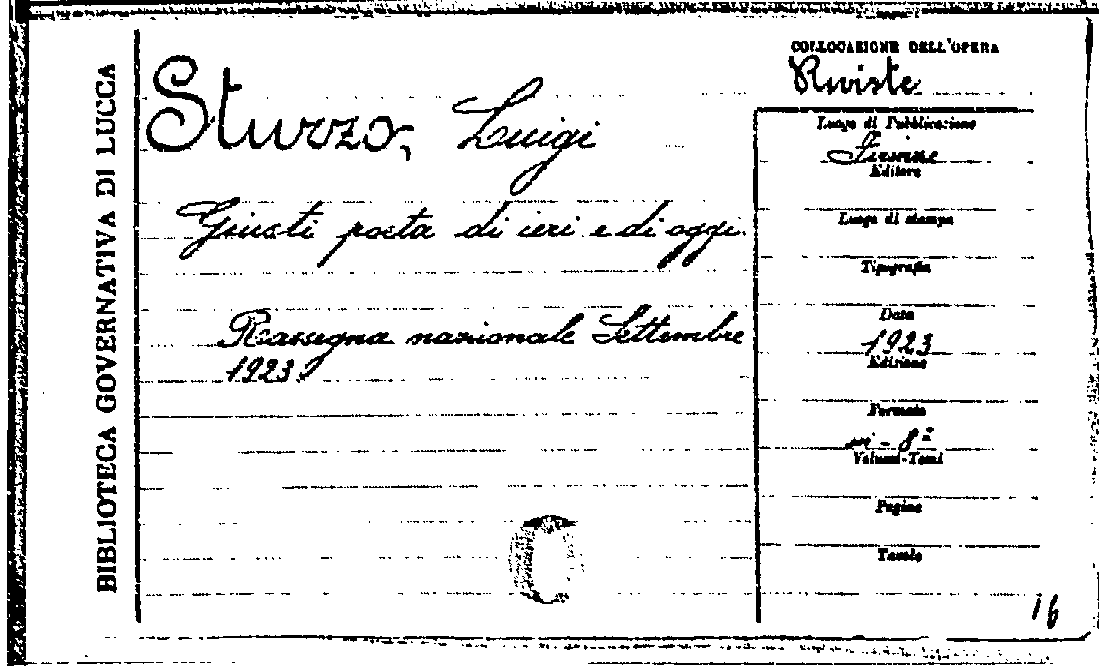 BIBLIOTECA GOVERNATIVA DI LUCCA
Sturzo, Luigi
Giusti poeta di ieri e di oggi.
Rassegna nazionale Settembre
1923.
COLLOCAZIONE DELL'OPERA
Riviste
Luogo di Pubblicazione
Firenze
Editore
Luogo di stampa
Tipografia
Data
1923
Edizione
Formato
in-8º
Volumi-Tomi
Pagine
Tavole
16